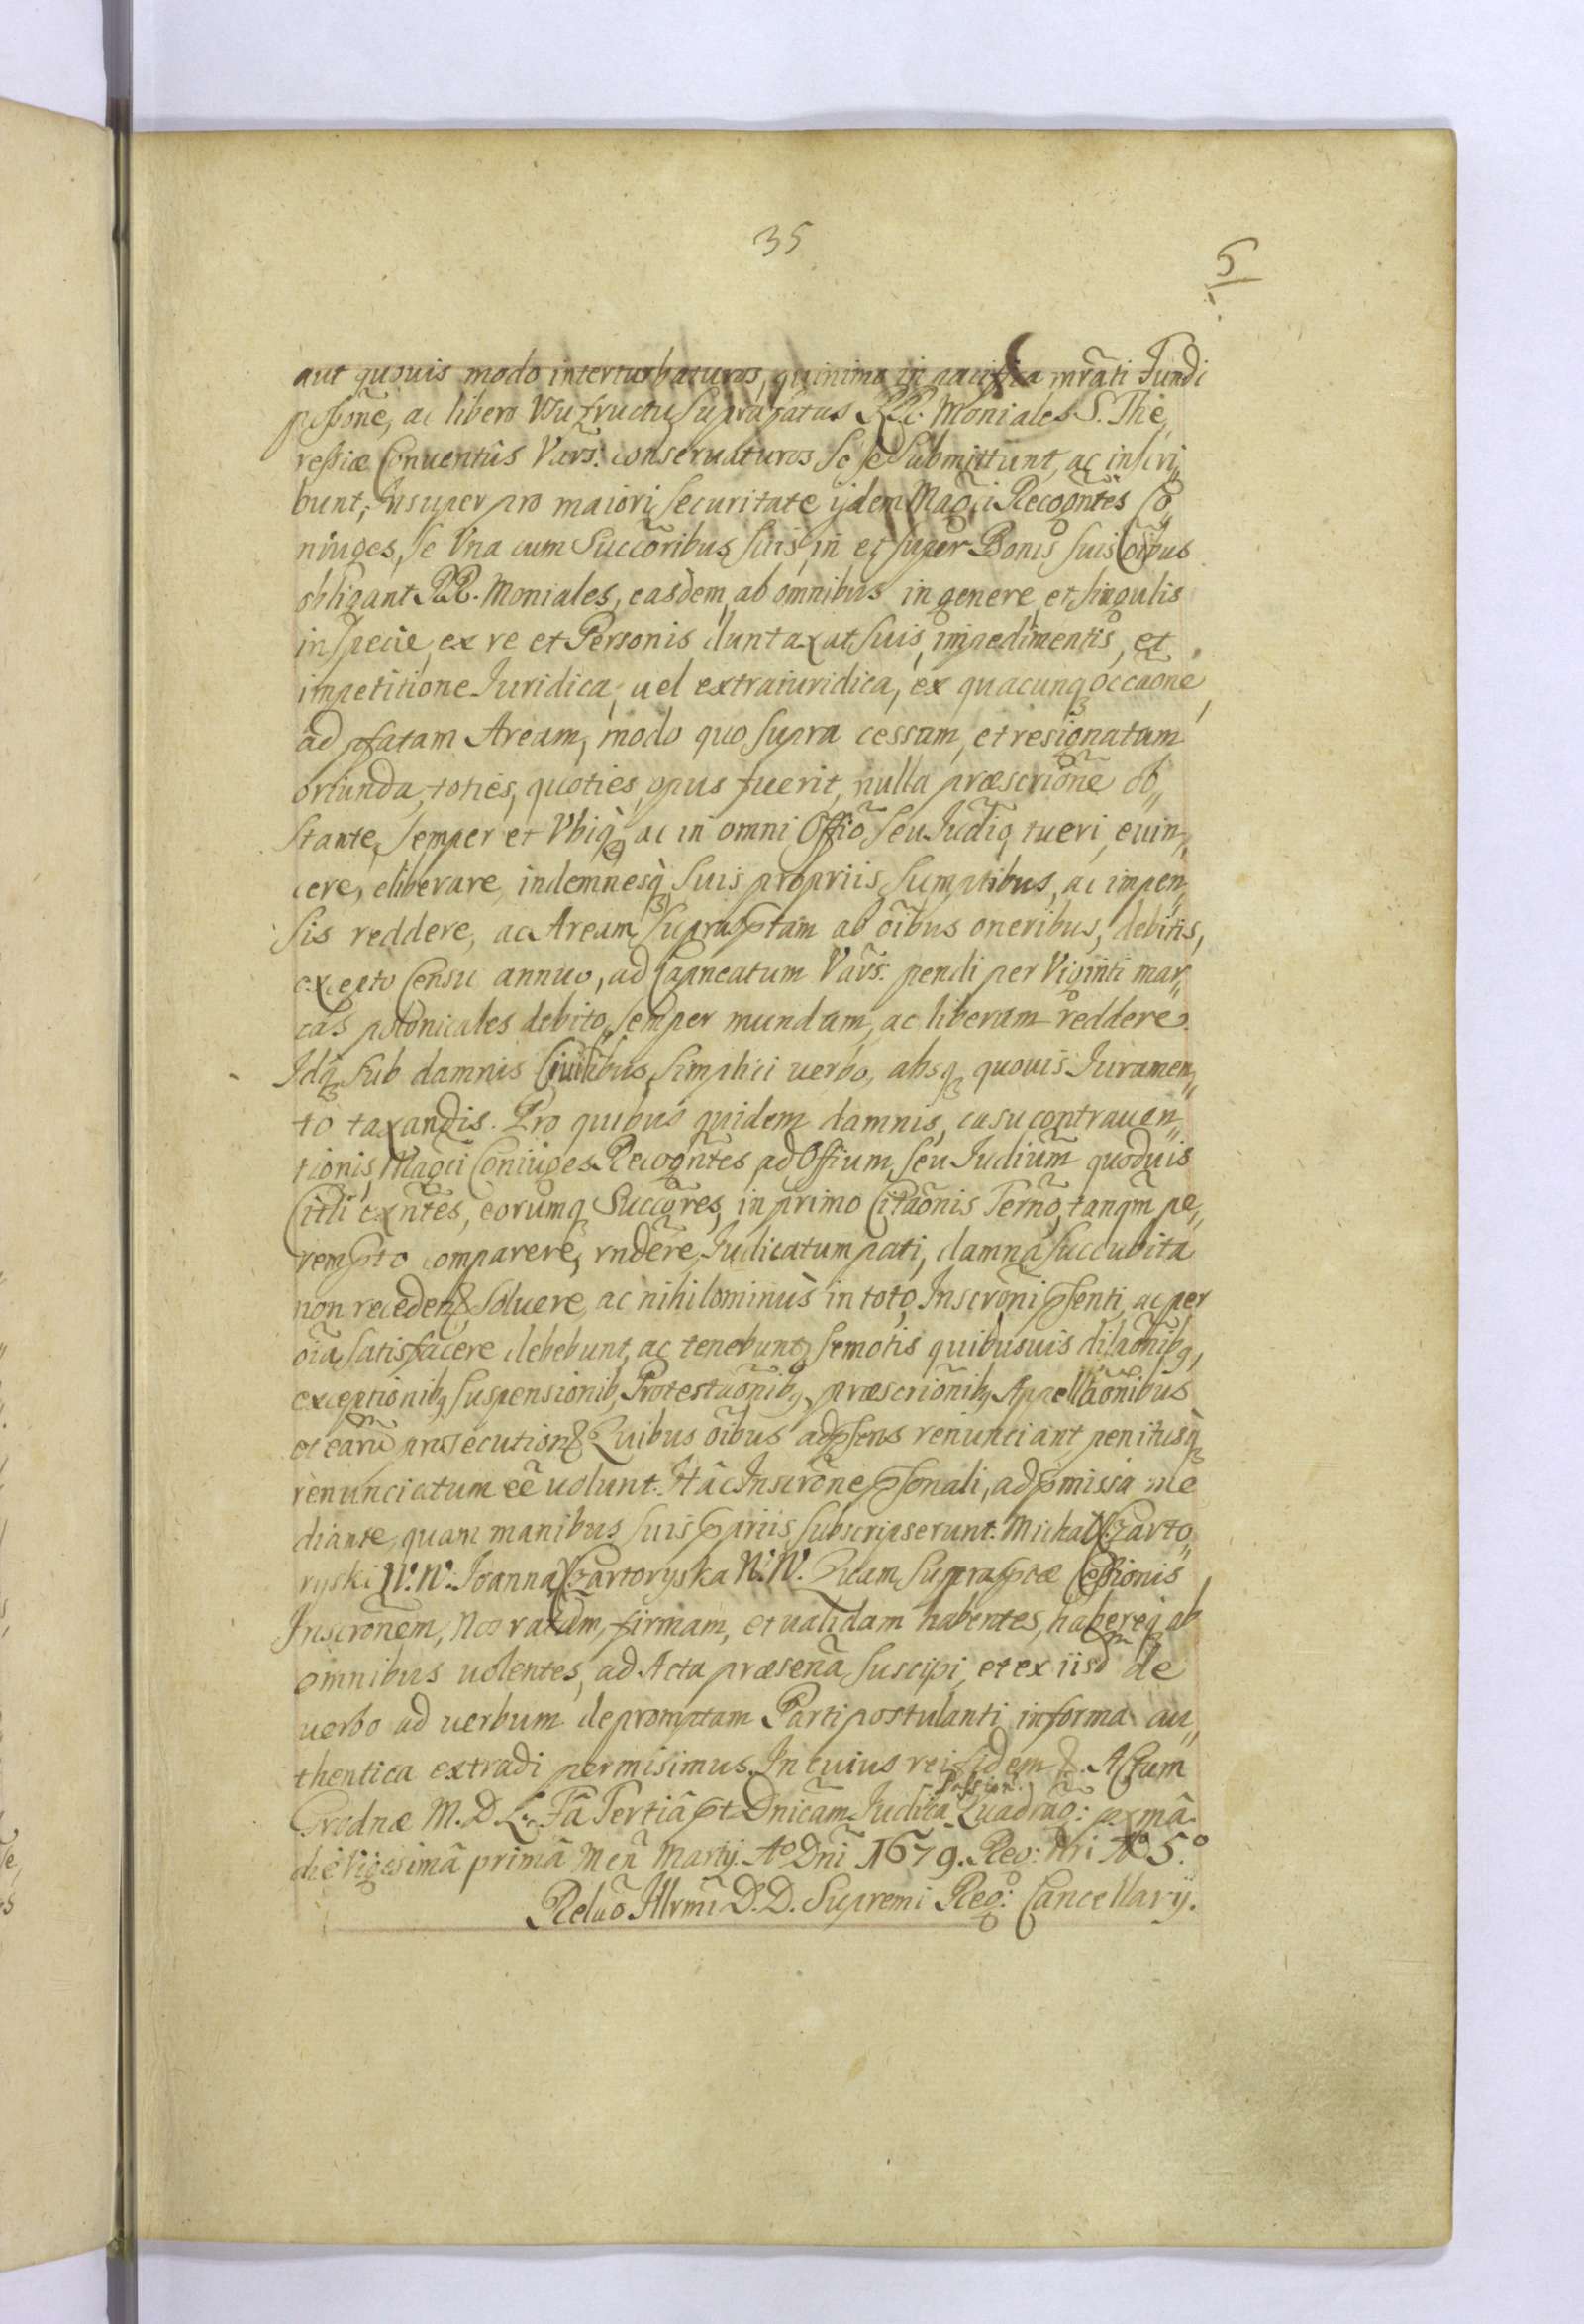 35
5
aut quouis modo interturbaturos, quinimo in pacifica mr̃ati Fundi
possõne, ac libero Vsufructu suprafatas RR. Moniales S. The„
ressiæ Conuentûs Vars: conseruaturos Se se submittunt, ac inscri„
bunt; Insuper pro maiori securitate ijdem Magci Recogñtes Cõ„
niuges, se Vna cum Succõribus suis, in et super Bonis suis oĩbus
obligant RR. Moniales, easdem, ab omnibus in genere, et singulis
in specie, ex re et Personis duntaxat suis, impedimentis, et
impetitione Iuridica, uel extraiuridica, ex quacunq; occãone
ad pfatam Aream, modo quo supra cessam, et resignatam
oriunda, toties, quoties, opus fuerit, nulla præscriõne ob„
stante, semper et Vbiq; ac in omni Offiõ seu Iudiõ tueri, euin„
cere, eliberare, indemnesq; suis propriis sumptibus, ac impen„
sis reddere, ac Aream supraptam ab oĩbus oneribus, debitis,
excepto Censu annuo, ad Capneatum Vars: pendi per Viginti mar„
cas polonicales debito, semper mundam, ac liberam reddere.
Idq; sub damnis Ciuilibus, simplici uerbo, absq; quouis Iuramen„
to taxandis. Pro quibus quidem damnis, casu contrauen„
tionis, Magci Coniuges Recogñtes ad Offium, seu Iudium̃ quoduis
Citti exñtes, eorumq; Succõres, in primo Citãonis Term̃o, tanqm̃ pe„
rempto comparere, rndere, Iudicatum pati, damna succubita
non recedend. soluere, ac nihilominùs in toto Inscrõni psenti, ac per
oĩa satisfacere debebunt, ac tenebunt, semotis quibusuis dilaõnibq,
exceptionib, suspensionib, Protestãonibq, præscriõnibq, Appellãonibus
et earũ prosecution. Quibus oĩbus ad psens renunciant penitusq;
renunciatum eẽ uolunt. Hâc Inscrõne psonali, ad pmissa me
diante, quam manibus suis ppriis subscripserunt. Michał Czarto„
ryski W. W: Ioanna Czartoryska W. W. Quam supraptæ Cessionis
Inscrõnem, Nos ratam, firmam, et ualidam habentes, habereq; ab
omnibus uolentes, ad Acta præsena suscipi, et ex iisdm de
uerbo ad uerbum depromptam Parti postulanti in forma au„
thentica extradi permisimus. In cuius rei fidem &. Actum
Passion.
Grodnæ M. D L. Fâ Tertiâ pt Dnicam Iudica Quadrag: pxmâ.
die Vigesimâ primâ Meñ Martij. Ao Dñi 1679. Reg: Nri Ao 5.o
Relão Illrmi D. D. Supremi Reg: Cancellarij.